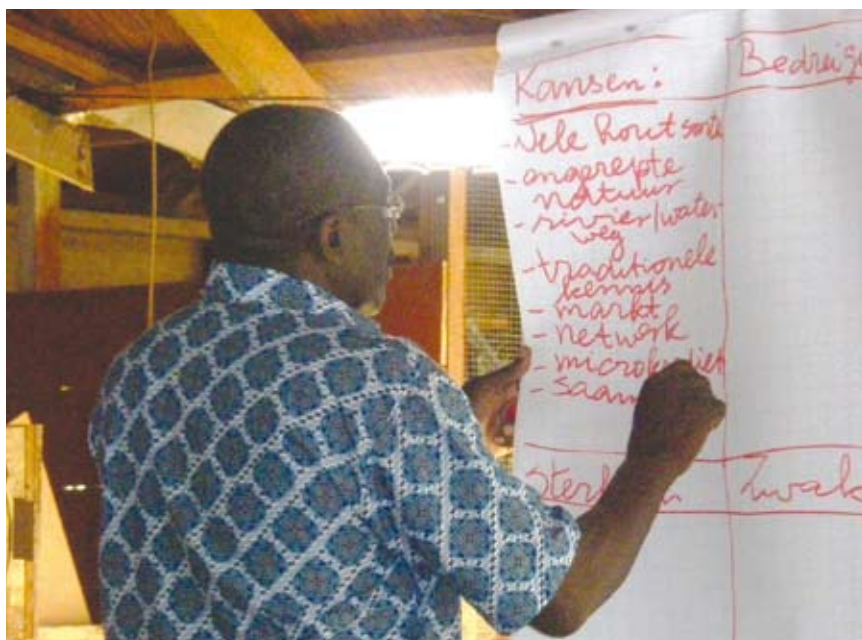 Kansen:
- Vele hout
- ongerepte
natuur
- rivier/water
weg
- traditionele
kennis
- markt
- netwerk
- saam
Bedreig
Zwak